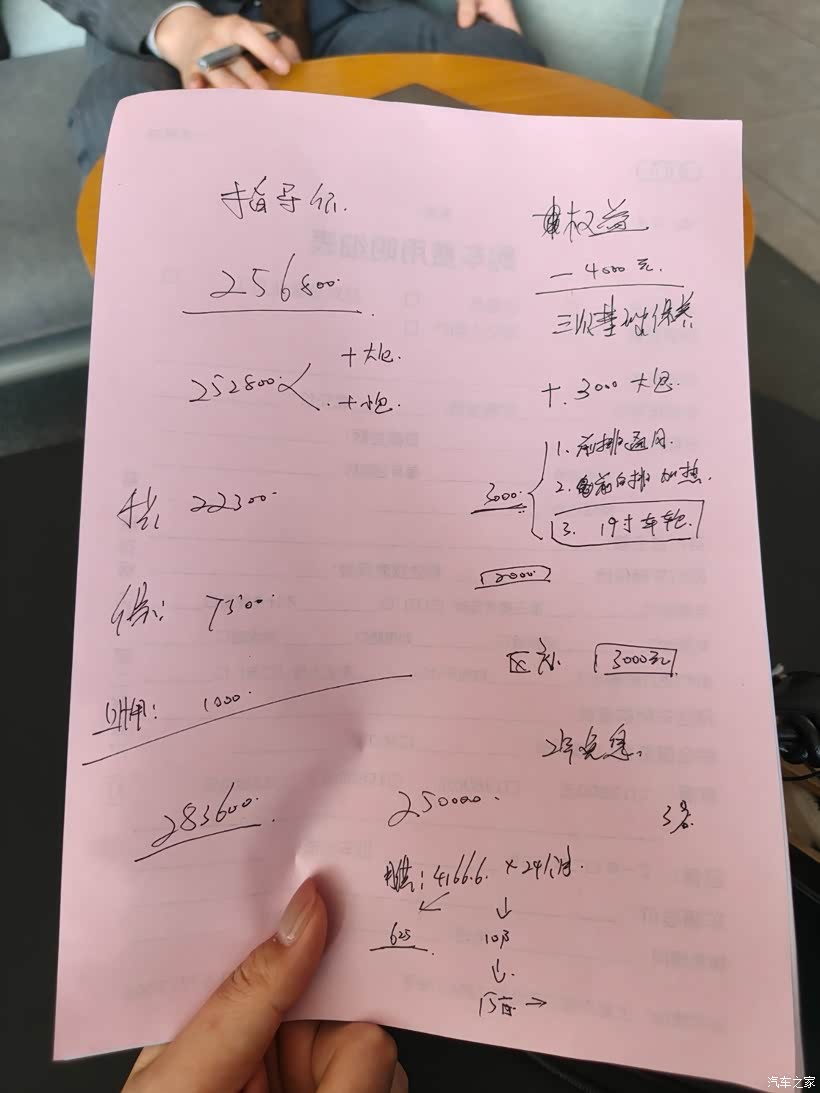 指导价
256800
252800
+大包
+小包
税 22300
保: 7500
1000
283600
权益
一 4000元
三次基础保养
+ 3000 大包
3000
1. 前排通风
2. 前后排加热
3. 19寸车轮
2000
区补 3000元
2年免息
250000
3名
月供: 4166.6 × 24个月
625
10万
15万 →
汽车之家